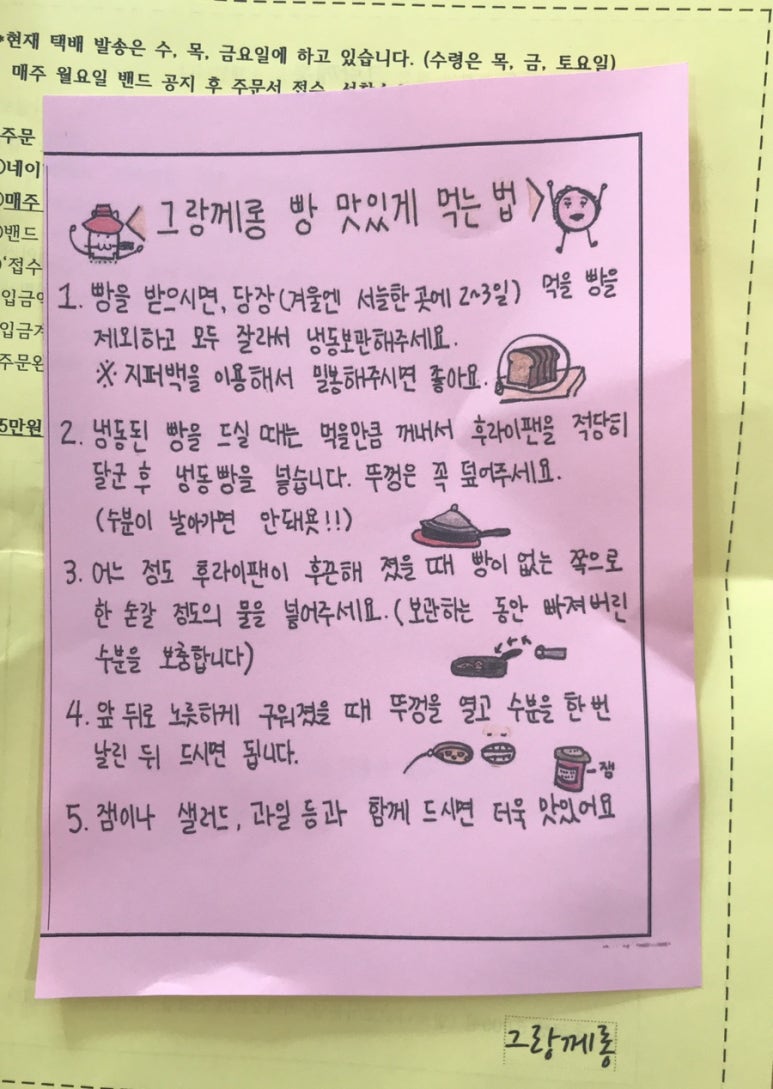 *현재 택배 발송은 수, 목, 금요일에 하고 있습니다. (수령은 목, 금, 토요일)
매주 월요일 밴드 공지 후 주문서 접수,
주문
네이
매주
밴드
'접수
입금
입금
주문
5만원
<그랑께롱 빵 맛있게 먹는 법>
1. 빵을 받으시면, 당장(겨울엔 서늘한 곳에 2~3일) 먹을 빵을
제외하고 모두 잘라서 냉동보관해주세요.
※ 지퍼백을 이용해서 밀봉해주시면 좋아요.
2. 냉동된 빵을 드실 때는 먹을만큼 꺼내서 후라이팬을 적당히
달군 후 냉동빵을 넣습니다. 뚜껑은 꼭 덮어주세요.
(수분이 날아가면 안돼욧!!)
3. 어느 정도 후라이팬이 후끈해 졌을 때 빵이 없는 쪽으로
한 숟갈 정도의 물을 넣어주세요.(보관하는 동안 빠져버린
수분을 보충합니다)
4. 앞 뒤로 노릇하게 구워졌을 때 뚜껑을 열고 수분을 한 번
날린 뒤 드시면 됩니다.
잼
5. 잼이나 샐러드, 과일 등과 함께 드시면 더욱 맛있어요
그랑께롱